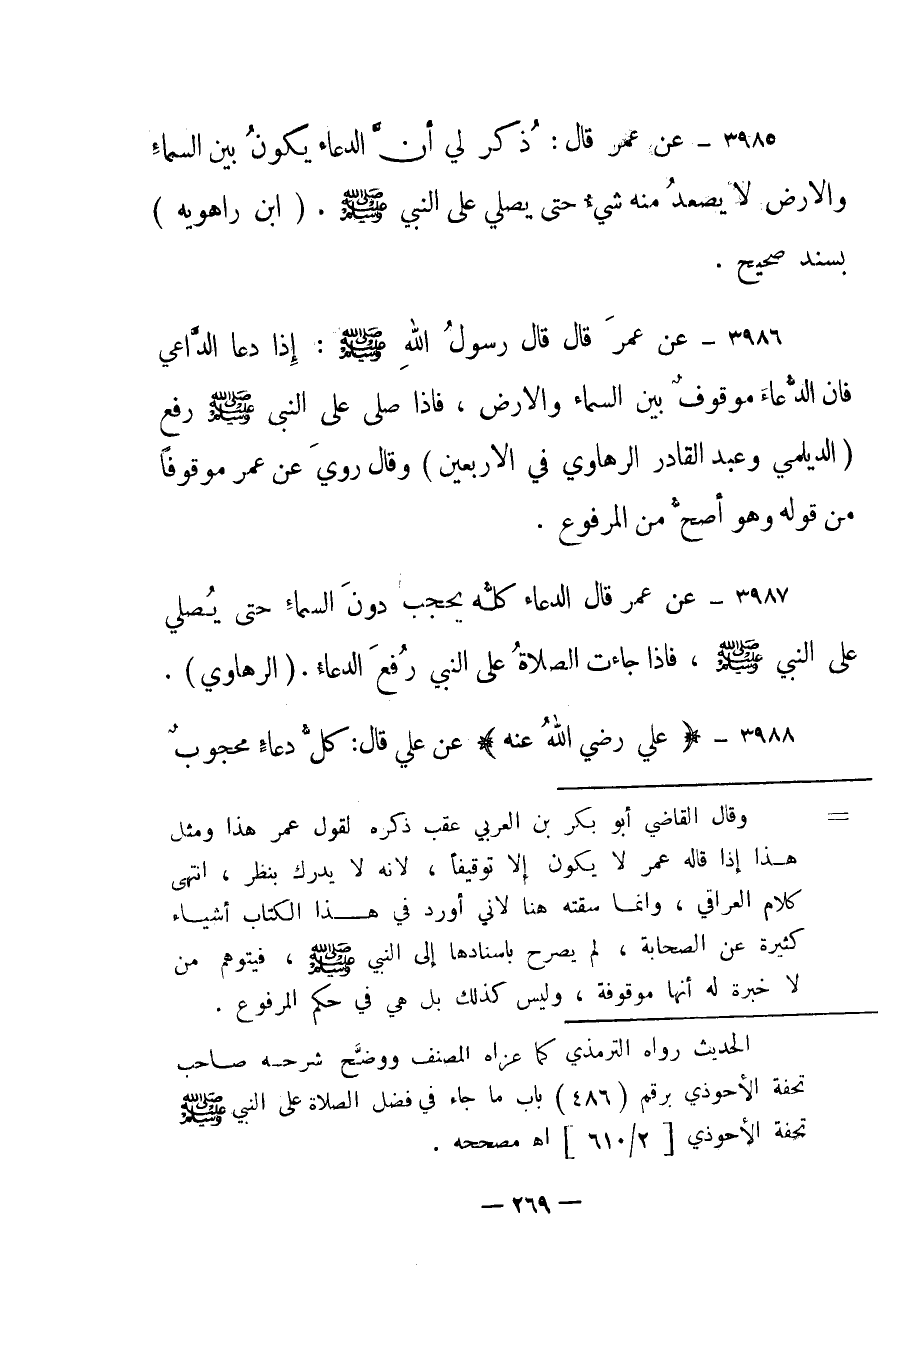 ٣٩٨٥ - عن عمر قال: ُذكر لي أنَّ الدعاء يكونُ بين السماءِ
والارض لا يصعدُ منه شيءٌ حتى يصلي على النبي ﷺ . ( ابن راهويه )
بسند صحيح .
٣٩٨٦ - عن عمرَ قال قال رسولُ اللهِ ﷺ : إِذا دعا الدَّاعي
فان الدُّعاءَ موقوفٌ بين السماء والارض ، فاذا صلى على النبي ﷺ رفع
( الديلمي وعبد القادر الرهاوي في الاربعين ) وقال رويَ عن عمر موقوفاً
من قوله وهو أصحُّ من المرفوع .
٣٩٨٧ - عن عمر قال الدعاء كلُّه يحجب دونَ السماءِ حتى يُصلي
على النبي ﷺ ، فاذا جاءت الصلاةُ على النبي رُفعَ الدعاء . ( الرهاوي ) .
٣٩٨٨ - ﴿ علي رضي اللهُ عنه ﴾ عن علي قال: كلُّ دعاءٍ محجوبٌ
= وقال القاضي أبو بكر بن العربي عقب ذكره لقول عمر هذا ومثل
هـذا إذا قاله عمر لا يكون إلا توقيفاً ، لانه لا يدرك بنظر ، انتهى
كلام العراقي ، وانمـا سقته هنا لاني أورد في هـــذا الكتاب أشيـاء
كثيرة عن الصحابة ، لم يصرح باسنادها إلى النبي ﷺ ، فيتوهم من
لا خبرة له أنها موقوفة ، وليس كذلك بل هي في حكم المرفوع .
الحديث رواه الترمذي كما عزاه المصنف ووضَّح شرحـه صـاحب
تحفة الأحوذي برقم ( ٤٨٦ ) باب ما جاء في فضل الصلاة على النبي ﷺ
تحفة الأحوذي [ ٦١٠/٢ ] اه مصححه .
— ٢٦٩ —